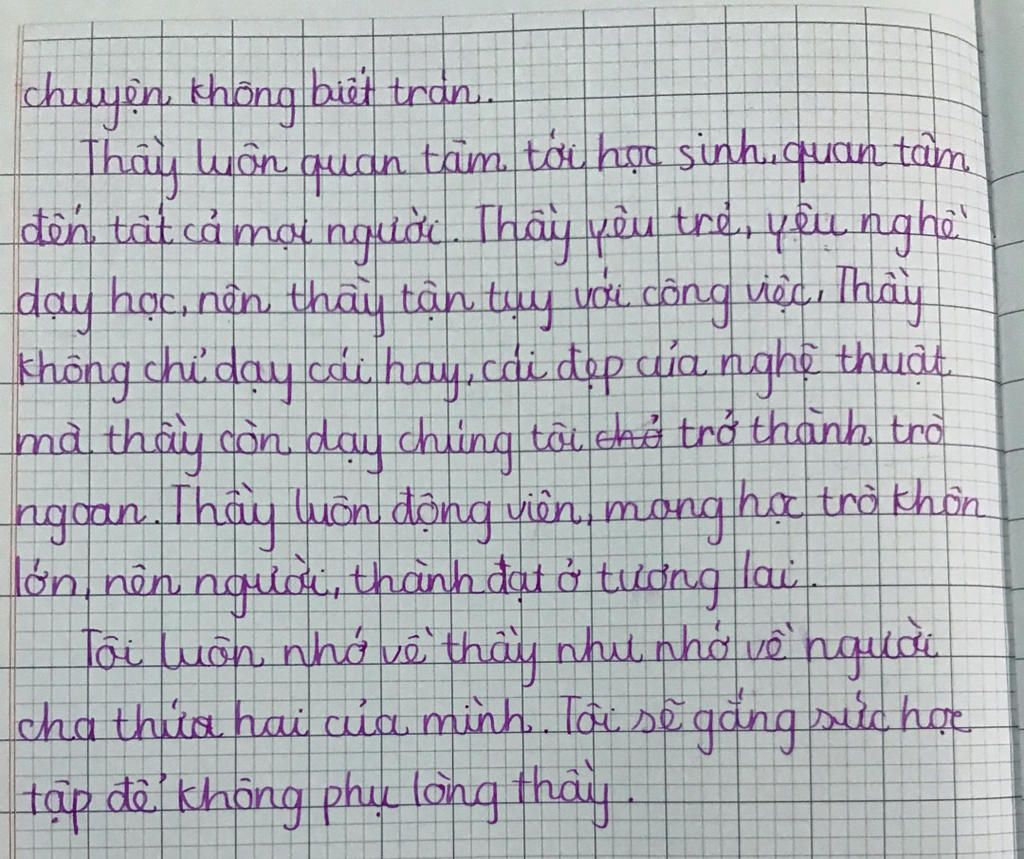 chuyện không biết trán.
Thầy luôn quan tâm tới học sinh, quan tâm
đến tất cả mọi người. Thầy yêu trẻ, yêu nghề
dạy học, nên thầy tận tụy với công việc, Thầy
không chỉ dạy cái hay, cái đẹp của nghệ thuật
mà thầy còn dạy chúng tôi chở trở thành trò
ngoan. Thầy luôn động viên, mong học trò khôn
lớn, nên người, thành đạt ở tương lai.
Tôi luôn nhớ về thầy như nhớ về người
cha thứa hai của mình. Tôi sẽ gắng sức học
tập để không phụ lòng thầy.